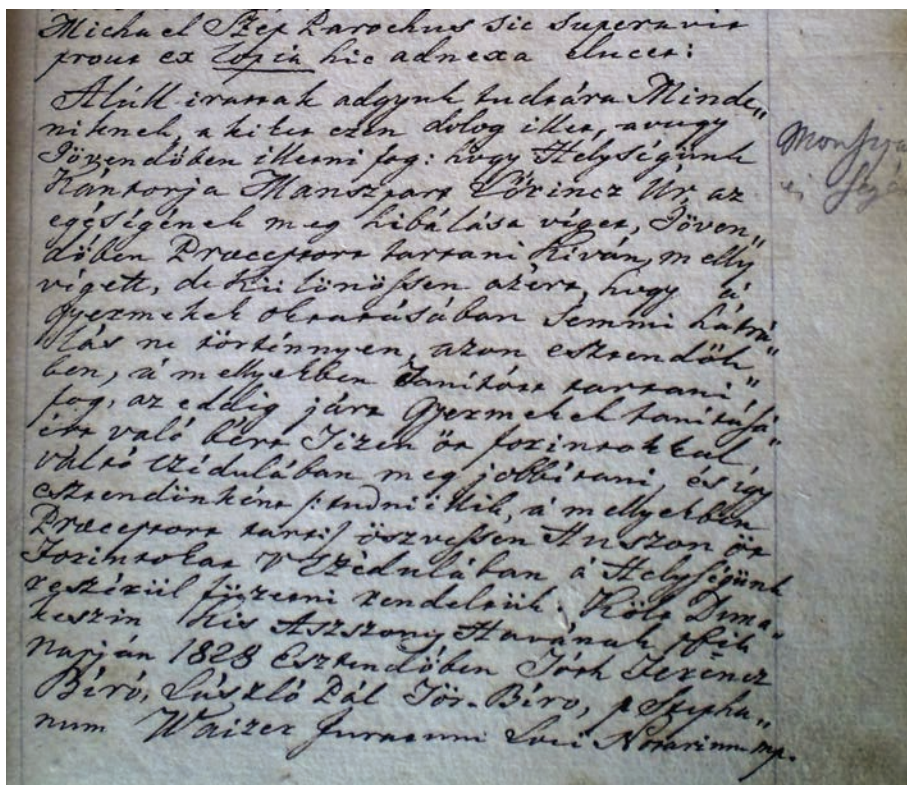 Michael Szep Parochus sic superavit
prout ex Copia hic adnexa elucet:
Alúll irattak adgyuk tudtára Minde„
niknek, a kiket ezen dolog illet, avagy
Jövendőben illetni fog: hogy Helységünk
Kántorja Manszpart Lőrincz Úr, az
egéségének meg hibálása véget, Jöven„
dőben Præceptort tartani kiván, melly
végett, de Kűlönössen azért, hogy á
gyermekek oktatásában semmi hátrá„
lás ne történnyen, azon esztendők„
ben, á mellyekben Tanítótt tartani
fog, az eddig járt Gyermekek tanitásá„
ért való bért Tizen öt forintokkal
váltó Czédulában meg jobbítani, és igy
esztendőnként /:tudni illik, á mellyekben
Præceptort tart:/ öszvessen Huszon öt
Forintokat V Czédulában á Helységünk
részérűl fizetni rendeltük. Költ Duna„
keszin Kis Aszszony Havának
Napján 1828 Esztendőben Tóth Ferencz
Biró, László Pál Tör. Biro, p Stepha„
num Waizer Juratum Loci Notarium mp.